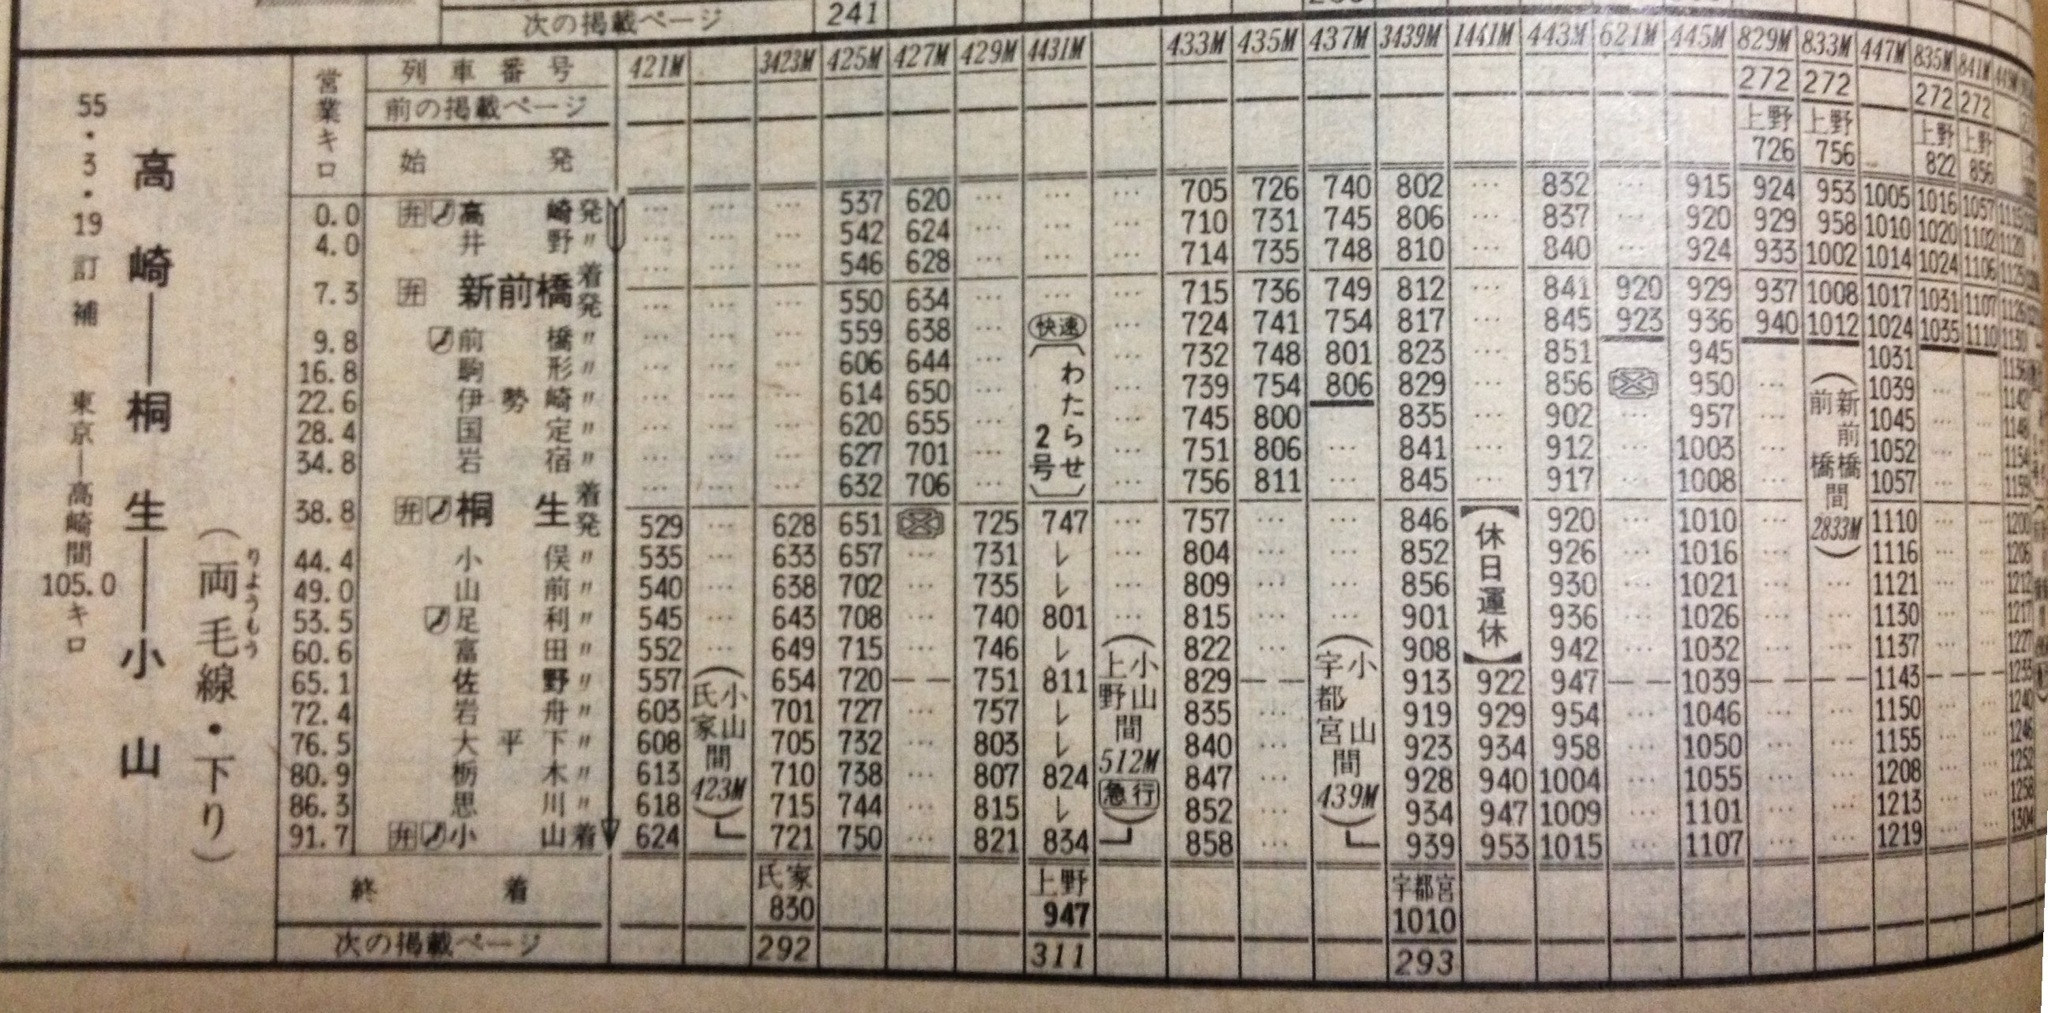 次の掲載ページ 241
列車番号 421M 3423M 425M 427M 429M 4431M 433M 435M 437M 3439M 1441M 443M 621M 445M 829M 833M 447M 835M 841M
前の掲載ページ 272 272 272 272
始発 上野 上野 上野 上野
726 756 822 856
営業キロ
0.0 弁 高崎発 … … … 537 620 … … … 705 726 740 802 … 832 … 915 924 953 1005 1016 1057
4.0 井野〃 … … … 542 624 … … … 710 731 745 806 … 837 … 920 929 958 1010 1020 1102
7.3 弁 新前橋着 … … … 546 628 … … … 714 735 748 810 … 840 … 924 933 1002 1014 1024 1106
発 … … … 550 634 … … … 715 736 749 812 … 841 920 929 937 1008 1017 1031 1107
9.8 前橋〃 … … … 559 638 … 快速 … 724 741 754 817 … 845 923 936 940 1012 1024 1035 1110
16.8 駒形〃 … … … 606 644 … … 732 748 801 823 … 851 945 1031
22.6 伊勢崎〃 … … … 614 650 … … 739 754 806 829 … 856 950 … 1039
28.4 国定〃 … … … 620 655 … … 745 800 835 … 902 … 957 … 1045
34.8 岩宿〃 … … … 627 701 … … 751 806 … 841 … 912 … 1003 … 1052
38.8 弁 桐生着 … … … 632 706 … … 756 811 … 845 … 917 … 1008 … 1057
発 529 … 628 651 725 747 … 757 846 920 … 1010 … 1110
44.4 小俣〃 535 … 633 657 … 731 レ … 804 … … 852 926 … 1016 … 1116
49.0 山前〃 540 … 638 702 … 735 レ … 809 … … 856 930 … 1021 … … 1121
53.5 足利〃 545 … 643 708 … 740 801 … 815 … … 901 936 … 1026 … … 1130
60.6 富田〃 552 … 649 715 … 746 レ 822 … 908 942 … 1032 … … 1137
65.1 佐野〃 557 654 720 751 811 829 913 922 947 1039 1143
72.4 岩舟〃 603 701 727 … 757 レ 835 … 919 929 954 … 1046 … … 1150
76.5 大平下〃 608 705 732 … 803 レ 840 … 923 934 958 … 1050 … … 1155
80.9 栃木〃 613 710 738 … 807 824 847 … 928 940 1004 … 1055 … … 1208
86.3 思川〃 618 715 744 … 815 レ 852 … 934 947 1009 … 1101 … … 1213
91.7 弁 小山着 624 721 750 … 821 834 858 … 939 953 1015 … 1107 … … 1219
終着 氏家 上野 宇都宮
830 947 1010
次の掲載ページ 292 311 293
わたらせ
2号
(小山
氏家
間
423M)
(小山
上野
間
512M
急行)
(小山
宇都宮
間
439M)
【休日運休】
(新前橋
前橋
間
2833M)
55・3・19訂補
東京―高崎間
105.0
キロ
高崎――桐生――小山
(両毛線・下り)
りょうもう